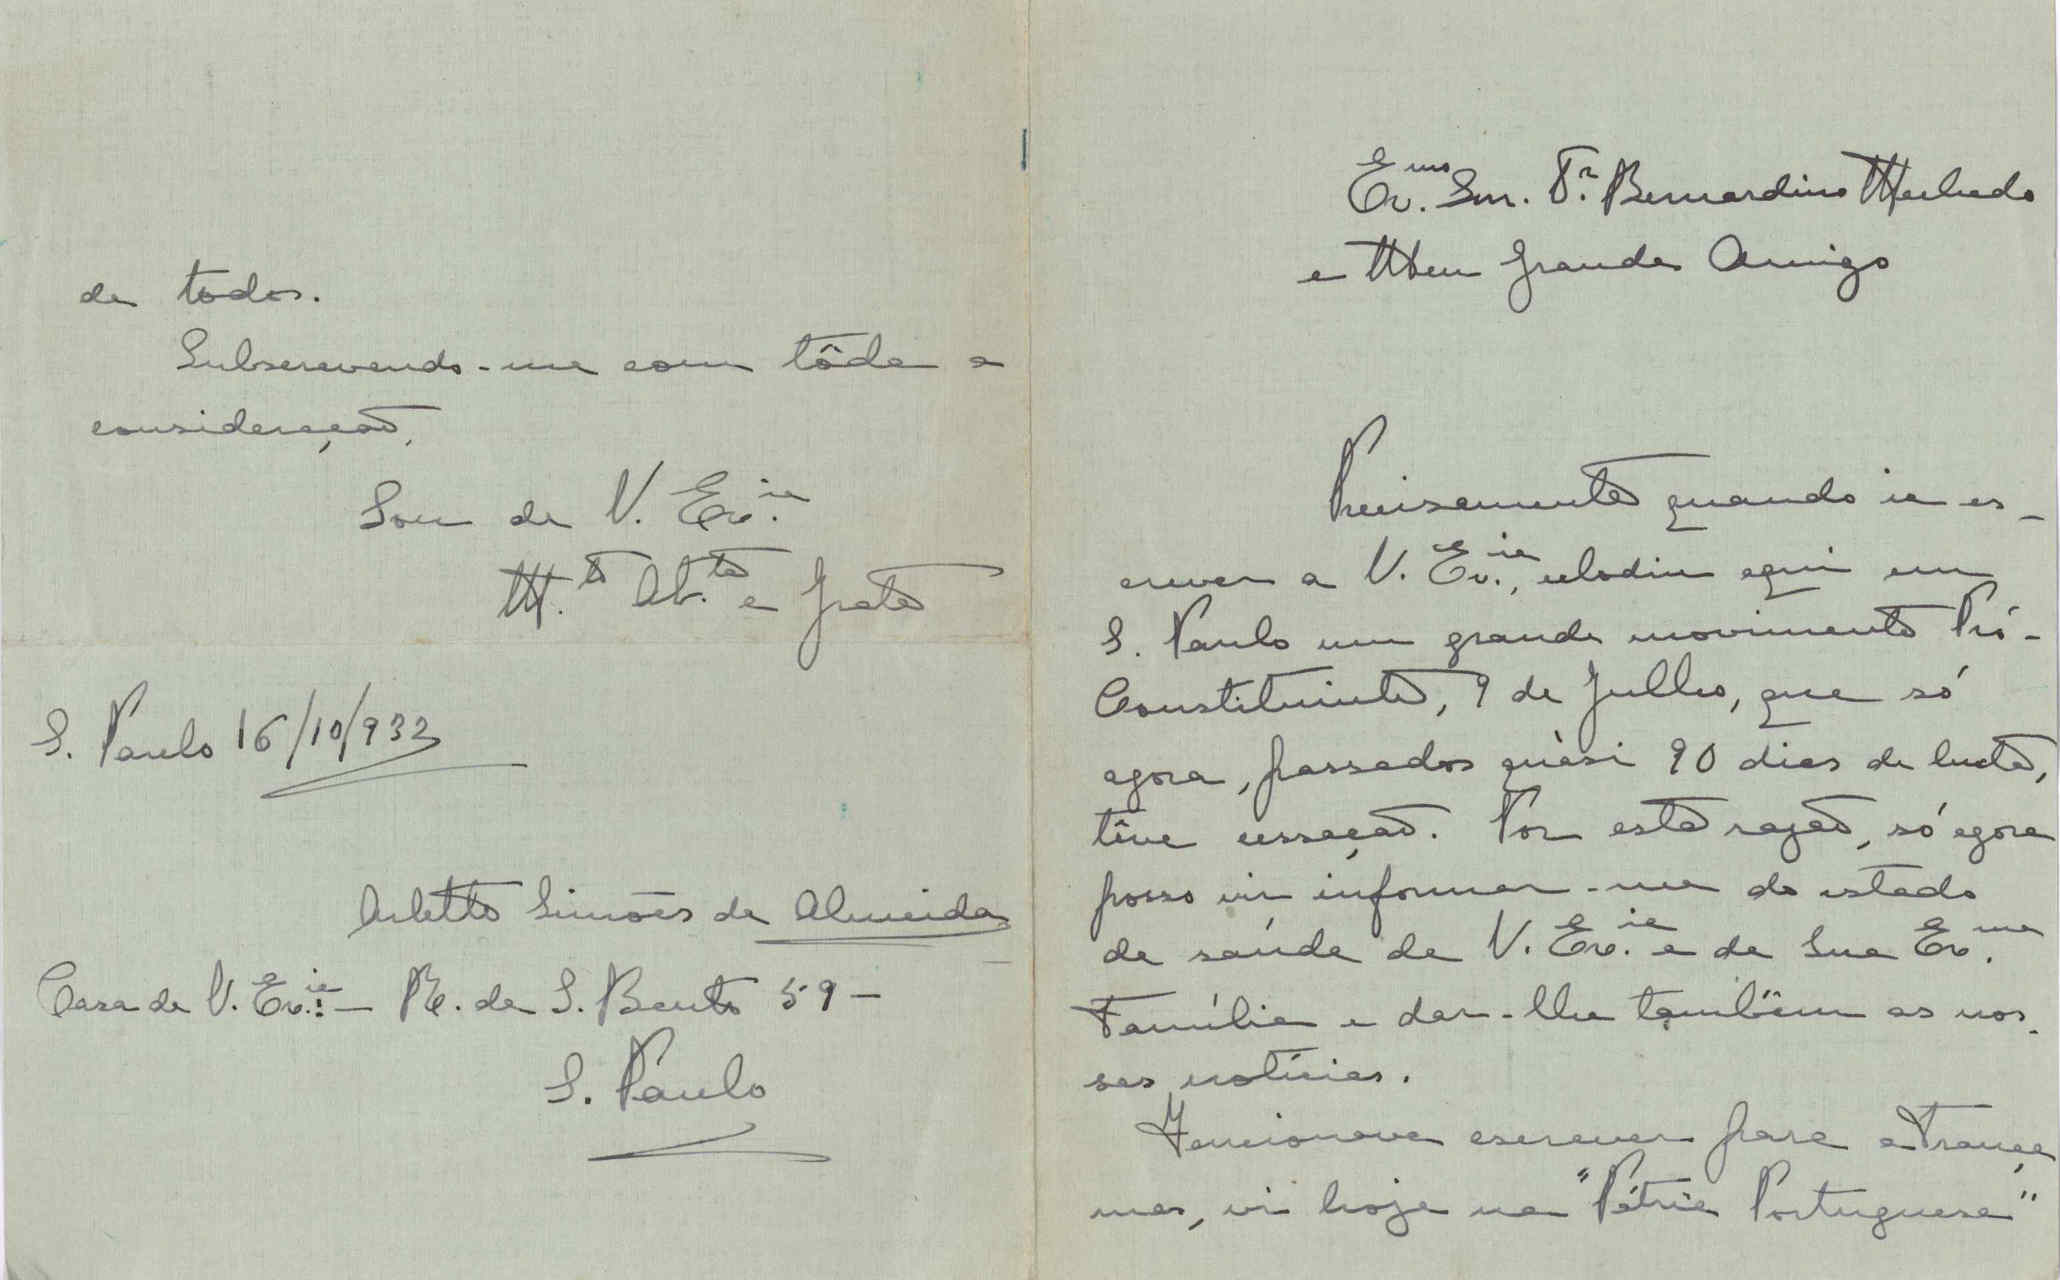 Ex.mo Snr. Dr. Bernardino Machado
e Meu Grande Amigo
Precisamente quando ia es-
crever a V. Ex.ia, eclodiu aqui em
S. Paulo um grande movimento Pró-
Constituinte, 9 de Julho, que só
agora, passados quási 90 dias de lucta,
têve cessação. Por esta razão, só agora
posso vir informar-me do estado
de saúde de V. Ex.ia e de Sua Ex.ma
Família e dar-lhe tambêm as nos-
sas notícias.
Tencionava escrever para a França
mas, vi hoje na "Pátria Portuguesa"
de todos.
Subscrevendo-me com tôda a
consideração,
Sou de V. Ex.ia
M.to At.to e Grato
S. Paulo 16/10/932
Arletto Simões de Almeida
Casa de V. Ex.ia: - R. de S. Bento 59 -
S. Paulo